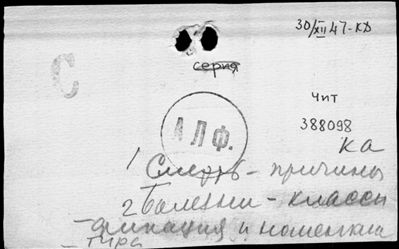 30/XII 47-КД
серия
С
ЧИТ
388098
АЛФ.
ка
1 Смерть - причины
2 Болезни - класси
-фикация и номенкла
-тура